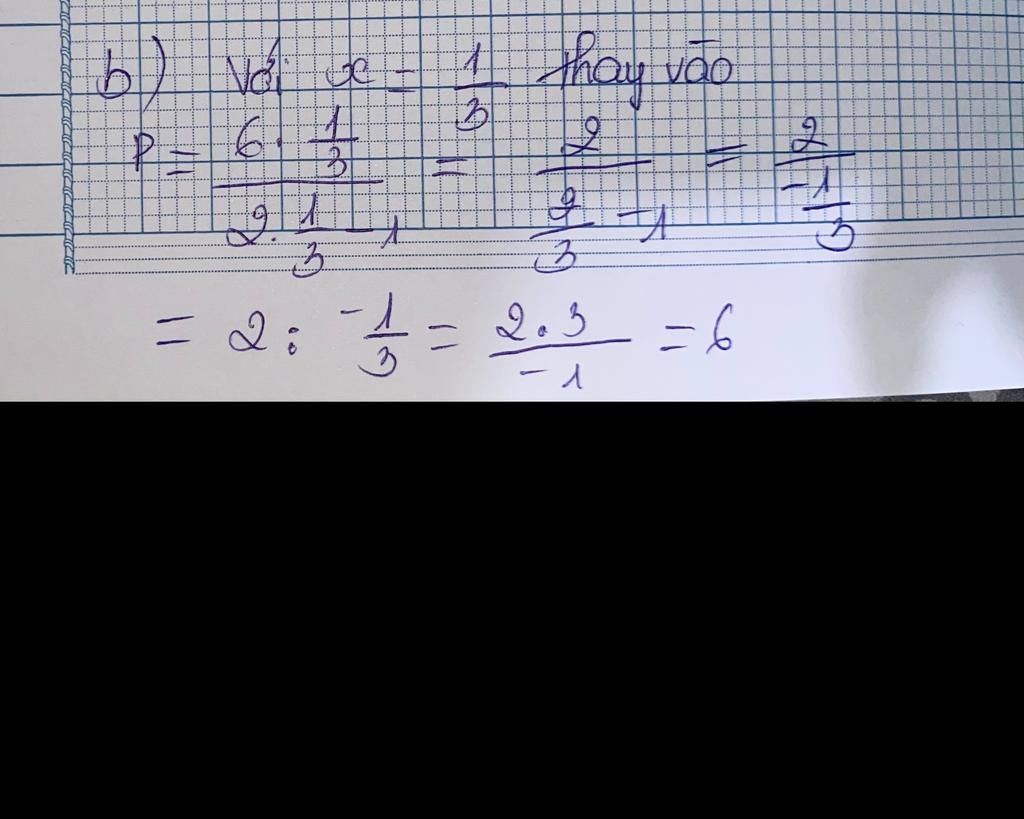 b) Với x = 1/3 thay vào
P = (6 · 1/3)/(2 · 1/3 - 1) = 2/(2/3 - 1) = 2/(-1/3)
= 2 : -1/3 = (2 · 3)/(-1) = 6